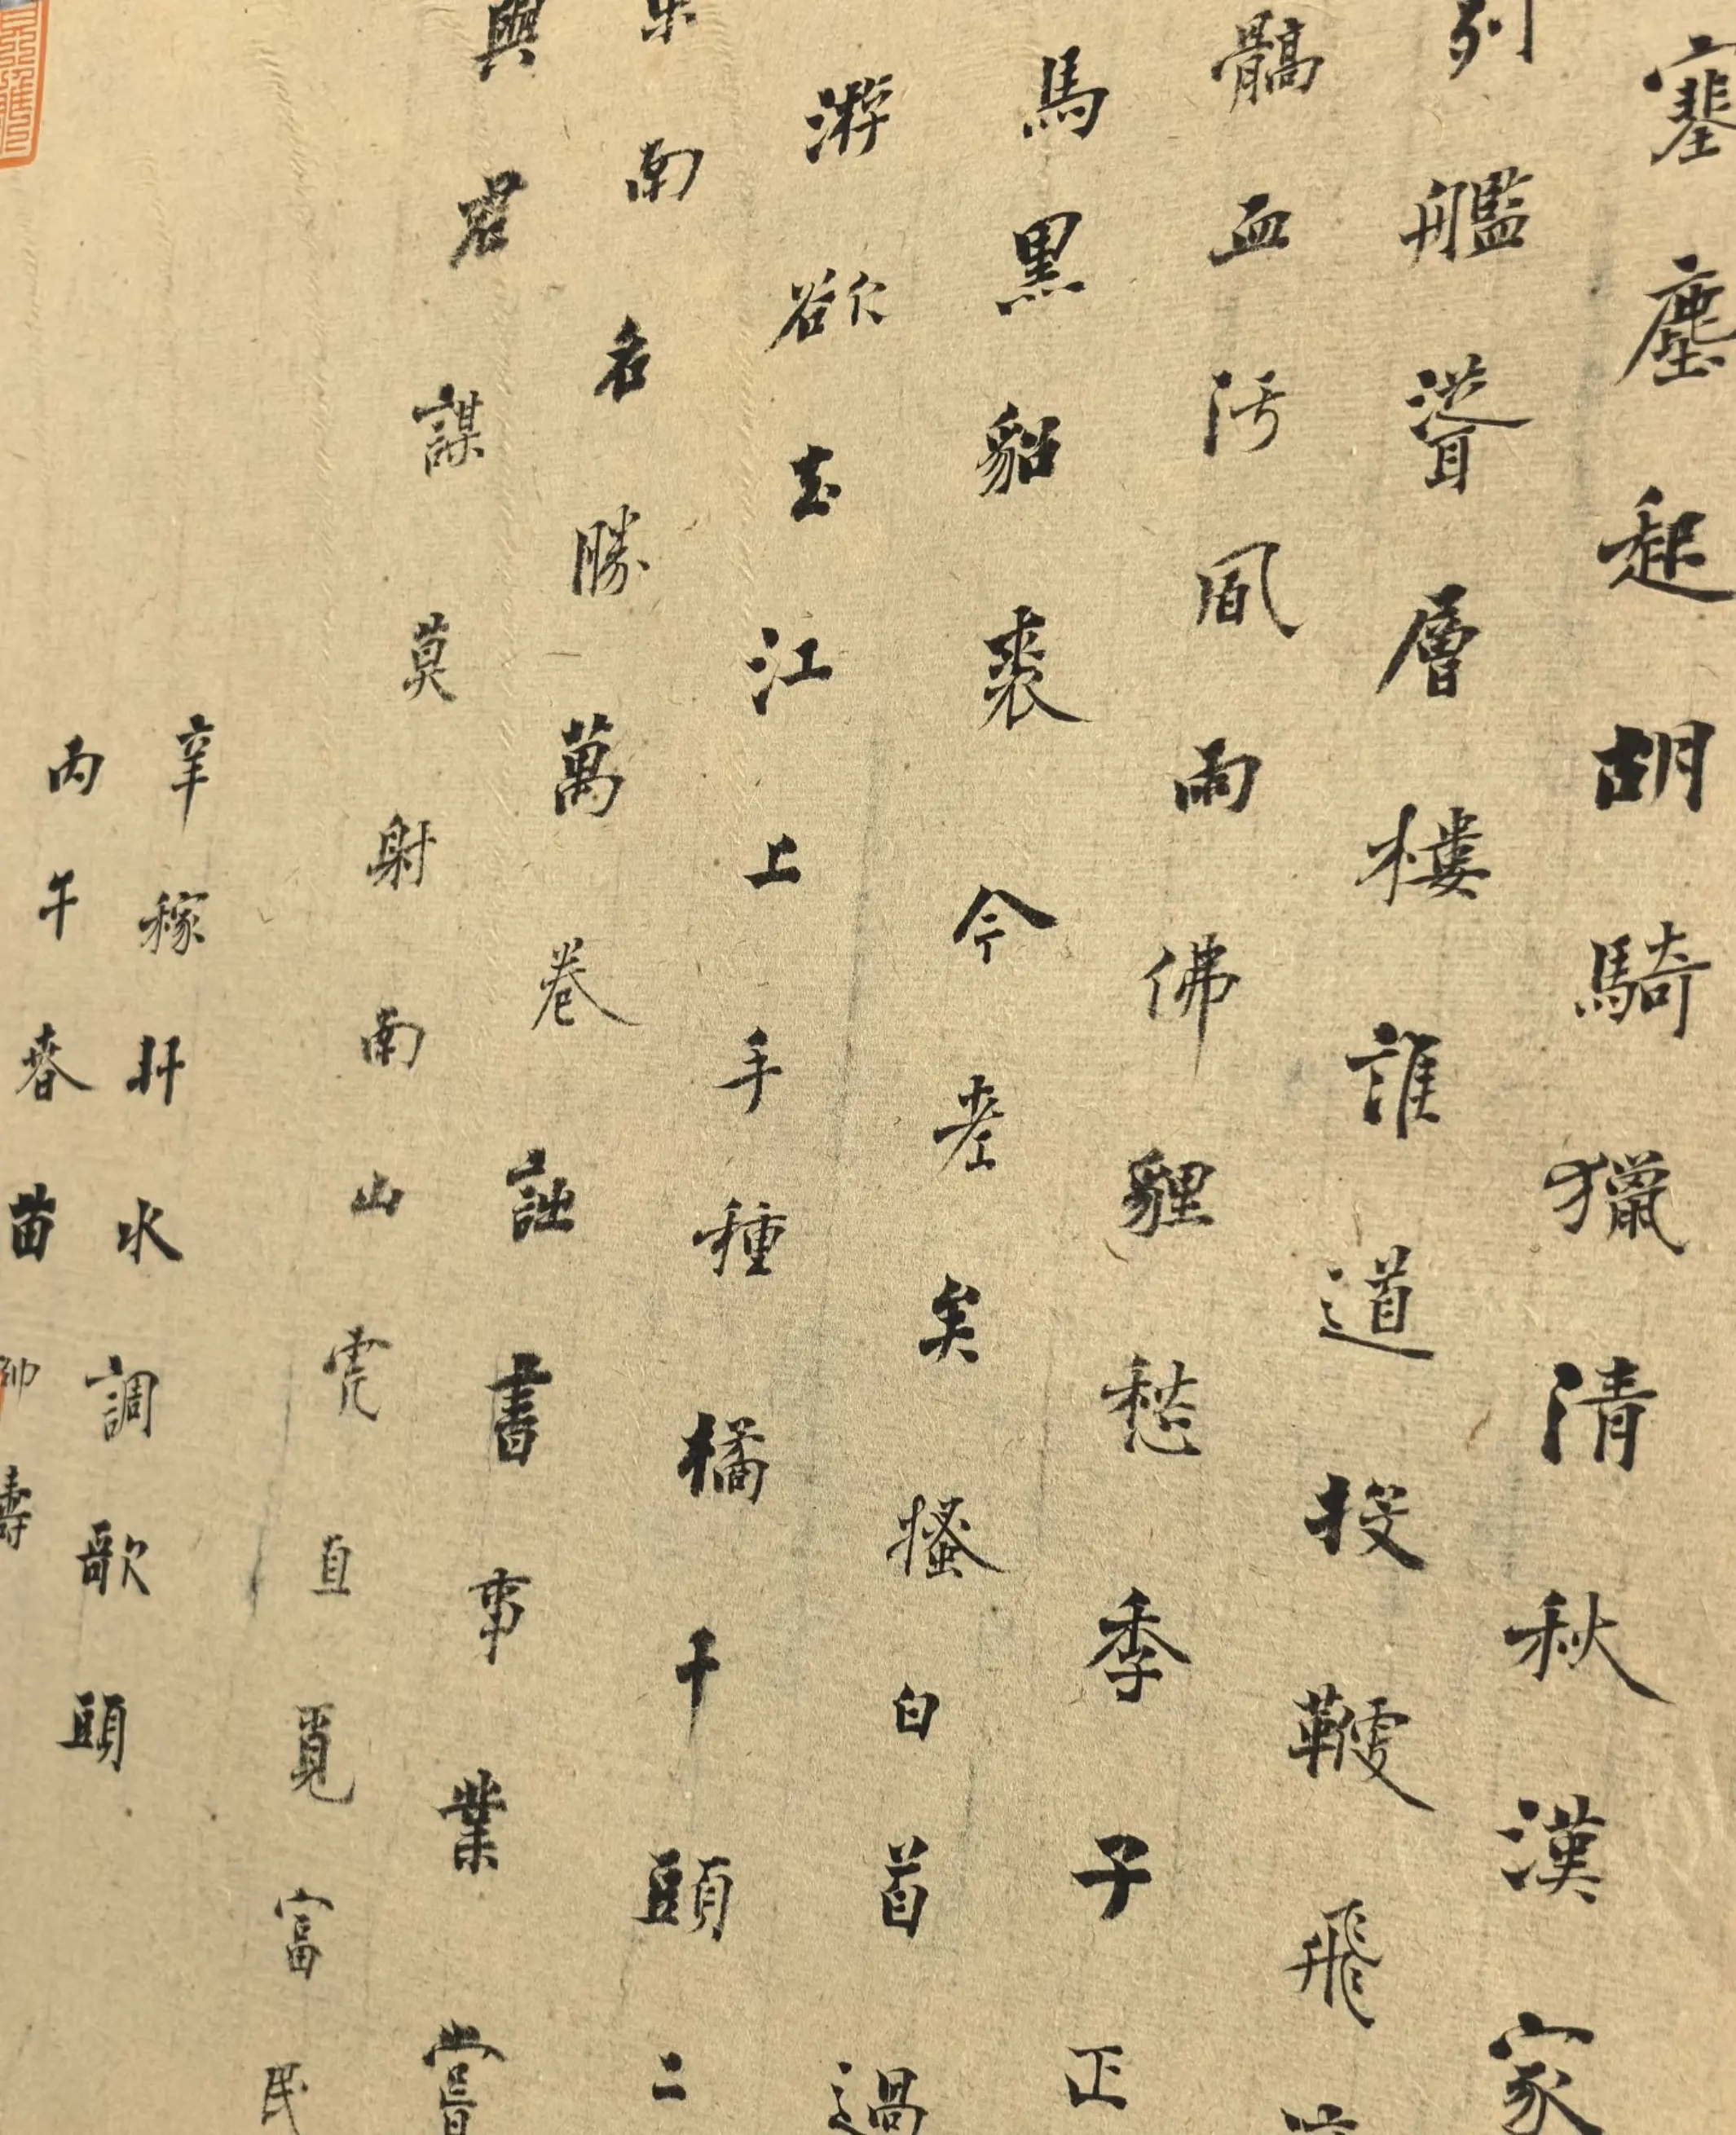 塞塵起胡騎獵清秋漢家
列艦聳層樓誰道投鞭飛
髇血污風雨佛貍愁季子正
馬黑貂裘今老矣搔白首過
游欲去江上手種橘千頭二
東南名勝萬卷詩書事業嘗
與君謀莫射南山虎直覓富民
辛稼軒水調歌頭
丙午春苗